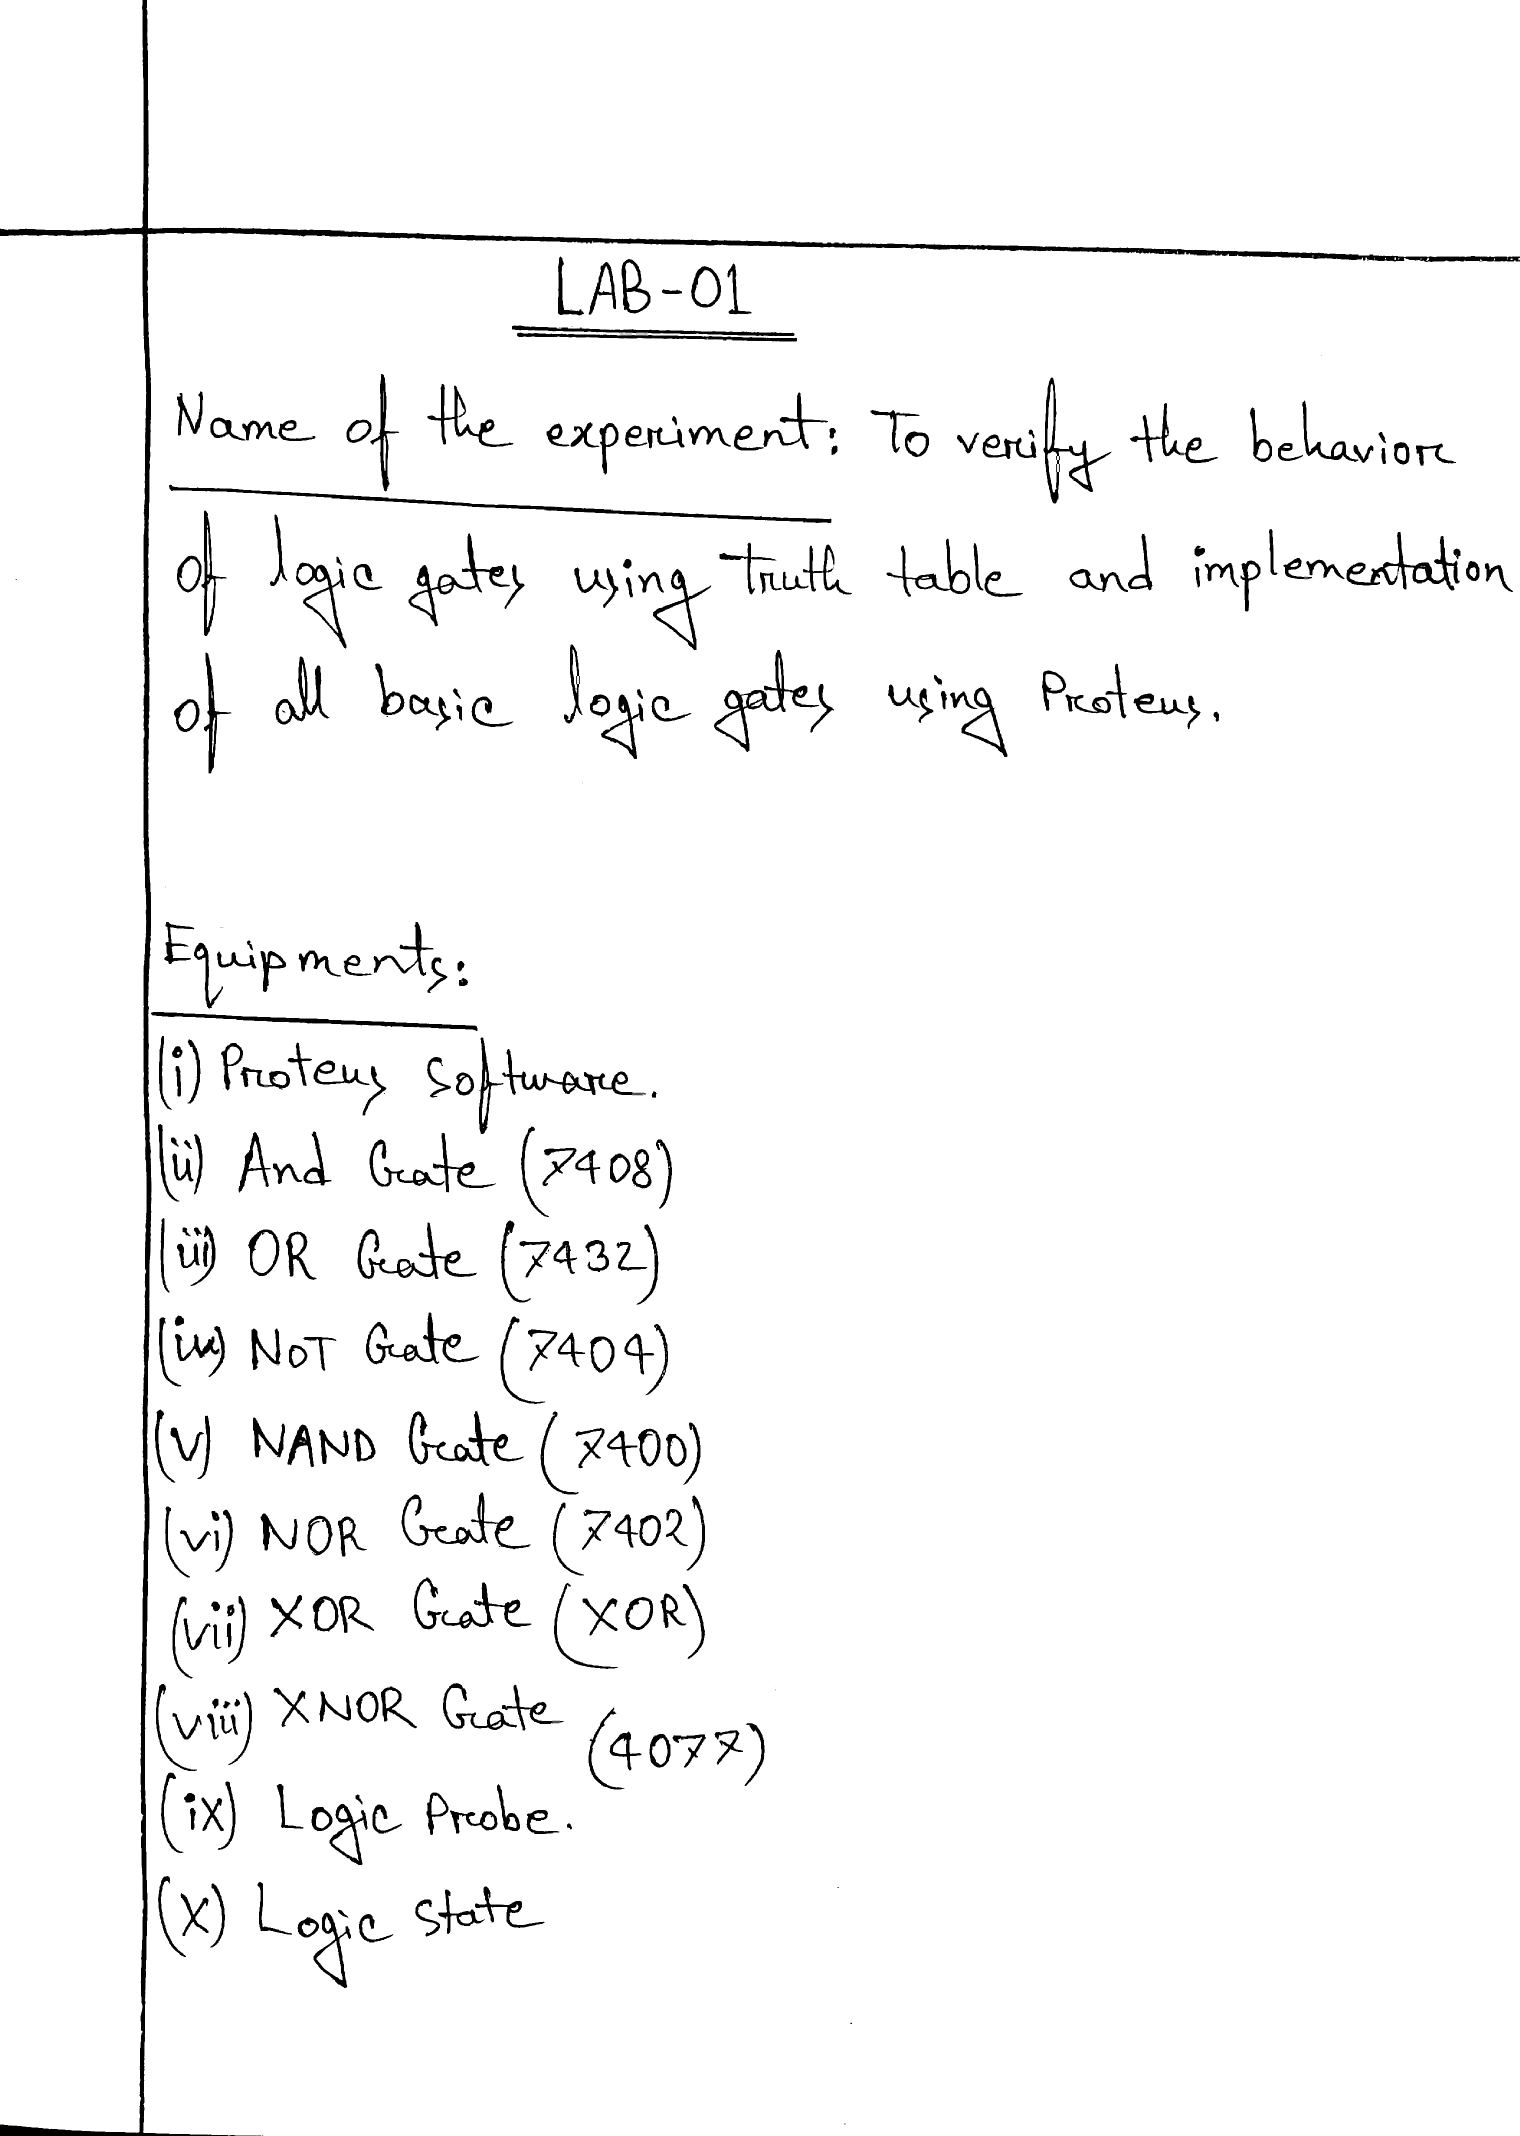 LAB-01
Name of the experiment: To verify the behavior
of logic gates using truth table and implementation
of all basic logic gates using Proteus.
Equipments:
(i) Proteus Software.
(ii) And Gate (7408)
(iii) OR Gate (7432)
(iv) NOT Gate (7404)
(v) NAND Gate (7400)
(vi) NOR Gate (7402)
(vii) XOR Gate (XOR)
(viii) XNOR Gate (4077)
(ix) Logic Probe.
(x) Logic state